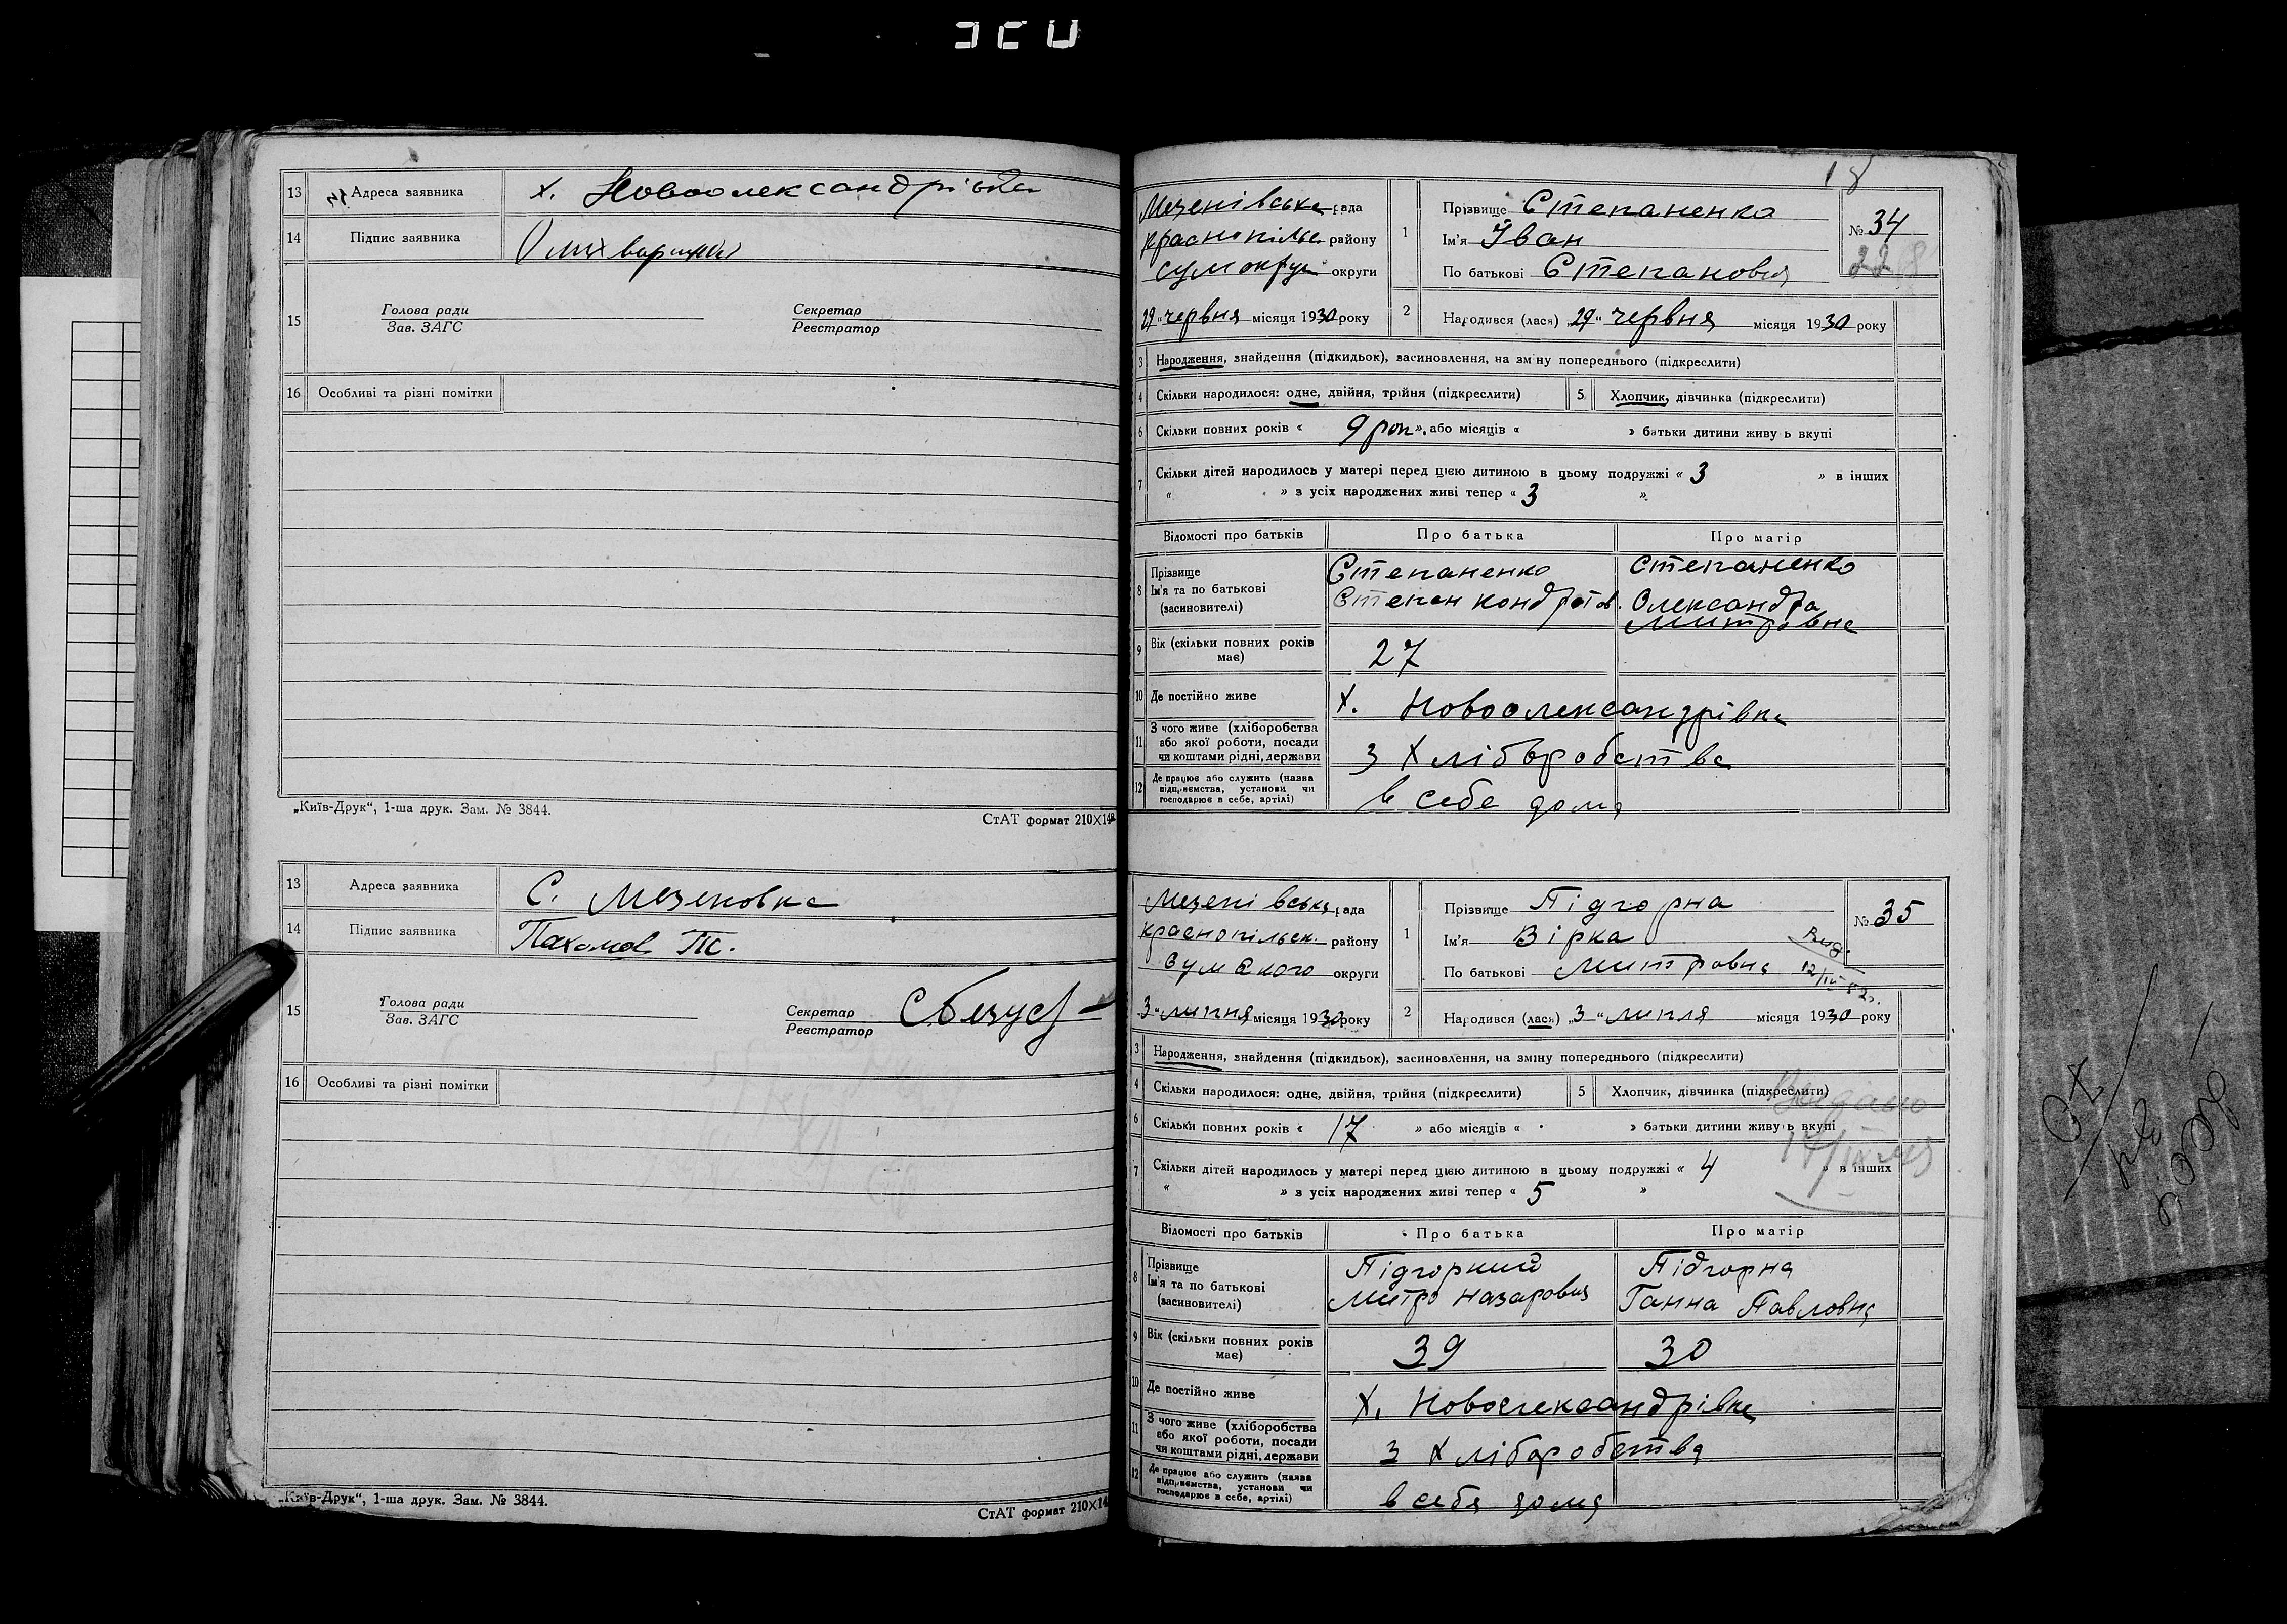 13 Адреса заявника х. Новоолександрівка
14 Підпис заявника
15 Голова ради Секретар
Зав. ЗАГС Реєстратор
16 Особливі та різні помітки
„Київ-Друк“, 1-ша друк. Зам. № 3844.
СтАТ формат 210×148
13 Адреса заявника С. Мезеновка
14 Підпис заявника Пахомов
15 Голова ради Секретар
Зав. ЗАГС Реєстратор
16 Особливі та різні помітки
„Київ-Друк“, 1-ша друк. Зам. № 3844.
СтАТ формат 210×14
18
Мезенівська рада 1 Прізвище Степаненко № 34
Краснопільс району Ім'я Іван 22
Сумокруги округи По батькові Степанович
29 „ червня місяця 1930 року 2 Народився (лася) „29“ червня місяця 1930 року
3 Народження, знайдення (підкидьок), засиновлення, на зміну попереднього (підкреслити)
4 Скільки народилося: одне, двійня, трійня (підкреслити) 5 Хлопчик, дівчинка (підкреслити)
6 Скільки повних років « 9 рок ». або місяців « » батьки дитини живуь вкупі
7 Скільки дітей народилось у матері перед цією дитиною в цьому подружжі « 3 » в інших
« » з усіх народжених живі тепер « 3 »
Відомості про батьків Про батька Про матір
8 Прізвище Степаненко Степаненко
Ім'я та по батькові Степан Кондратов. Олександра
(засиновителі) Митровна
9 Вік (скільки повних років має) 27
10 Де постійно живе х. Новоолександрівка
11 З чого живе (хліборобства
або якої роботи, посади з хліборобства
чи коштами рідні, держави
12 Де працює або служить (назва
підприємства, установи чи в себе дома
господарює в себе, артілі)
Мезенівська рада 1 Прізвище Підгорна № 35
Краснопільск. району Ім'я Вірка
Сумского округи По батькові Митровна
3 „ липня місяця 1930 року 2 Народився (лася) „3 “ липля місяця 1930 року
3 Народження, знайдення (підкидьок), засиновлення, на зміну попереднього (підкреслити)
4 Скільки народилося: одне, двійня, трійня (підкреслити) 5 Хлопчик, дівчинка (підкреслити)
Видано
6 Скільки повних років « 17 » або місяців « » батьки дитини живуь вкупі
7 Скільки дітей народилось у матері перед цією дитиною в цьому подружжі « 4 » в інших
« » з усіх народжених живі тепер « 5 »
Відомості про батьків Про батька Про матір
8 Прізвище Підгорний Підгорна
Ім'я та по батькові Митро Назарович Ганна Павловна
(засиновителі)
9 Вік (скільки повних років має) 39 30
10 Де постійно живе х. Новоолександрівка
11 З чого живе (хліборобства
або якої роботи, посади з хліборобства
чи коштами рідні, держави
12 Де працює або служить (назва
підприємства, установи чи в себя дома
господарює в себе, артілі)